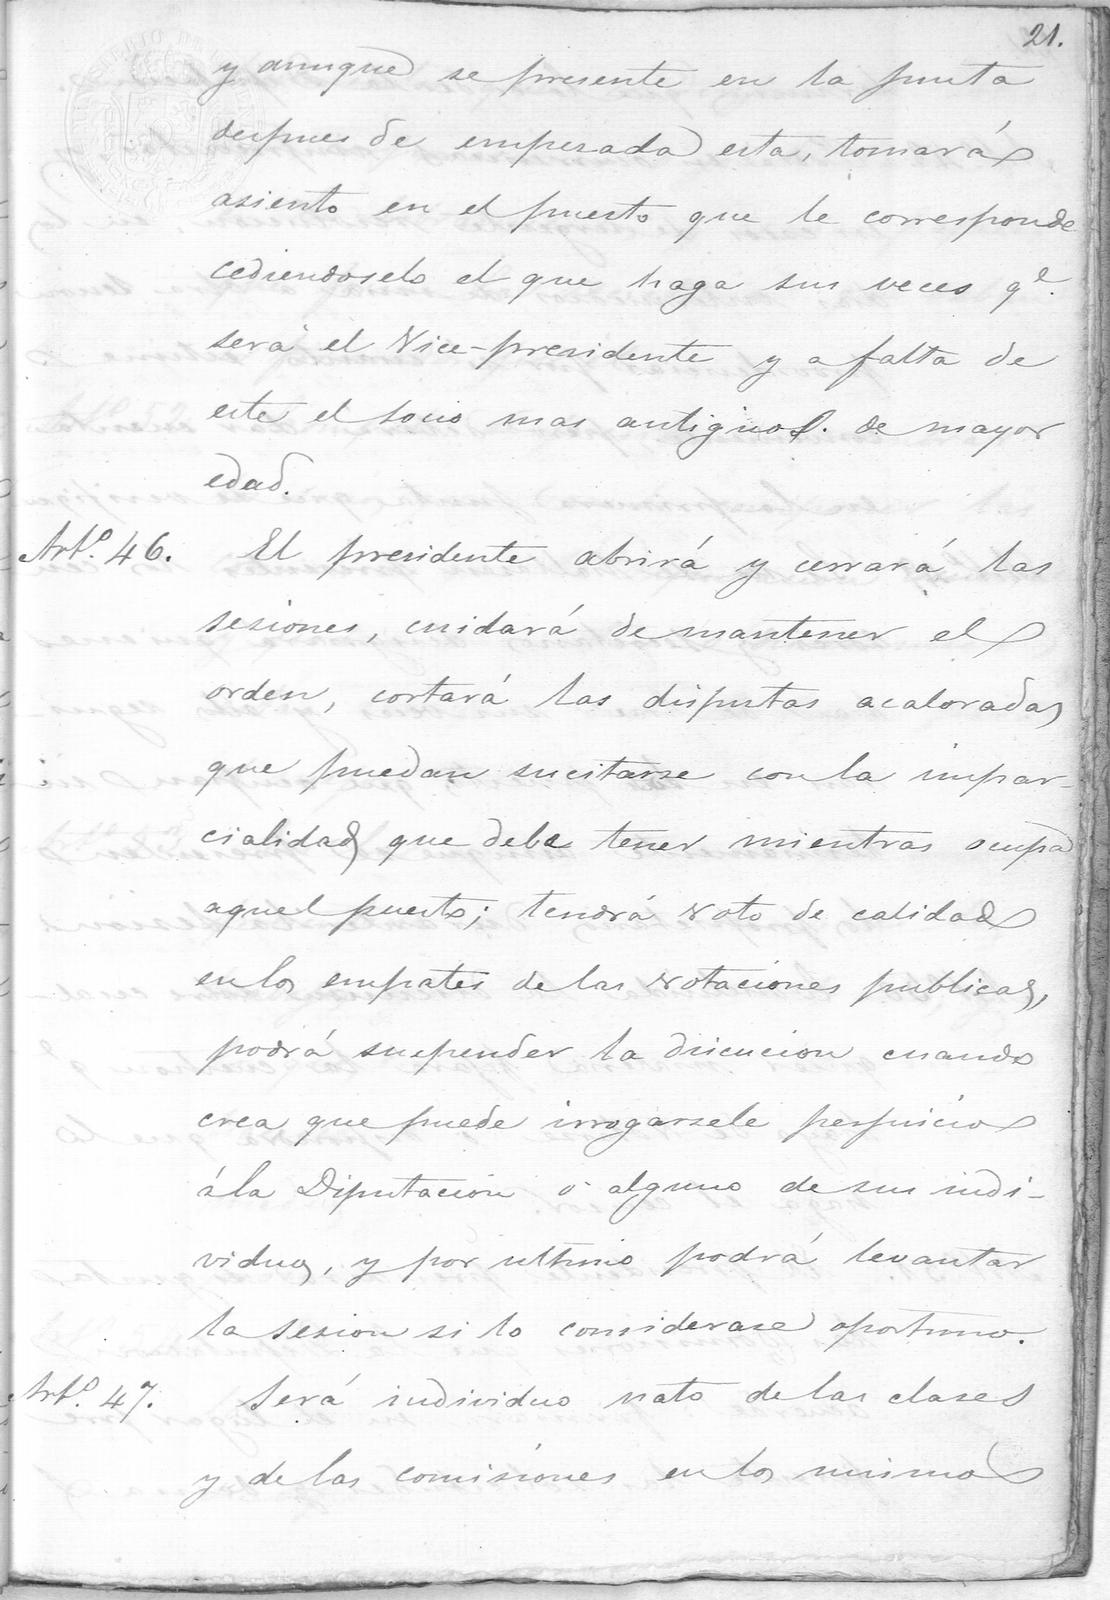 21.
y aunque se presente en la junta
despues de empesada esta, tomará
asiento en el puesto que le corresponde
cediendoselo el que haga sus veces qe.
será el Vice-presidente y a falta de
este el socio mas antiguo. de mayor
edad.
Arto. 46. El presidente abrirá y cerrará las
sesiones, cuidará de mantener el
orden, cortará las disputas acaloradas
que puedan sucitarse con la impar-
cialidad que debe tener mientras ocupa
aquel puesto; tendrá voto de calidad
en los empates de las votaciones publicas,
podrá suspender la discucion cuando
crea que puede irrogarsele perjuicio
á la Diputacion o alguno de sus indi-
viduos, y por ultimo podrá levantar
la sesion si lo considerase oportuno.
Arto. 47. Será individuo nato de las clases
y de las comisiones en los mismos